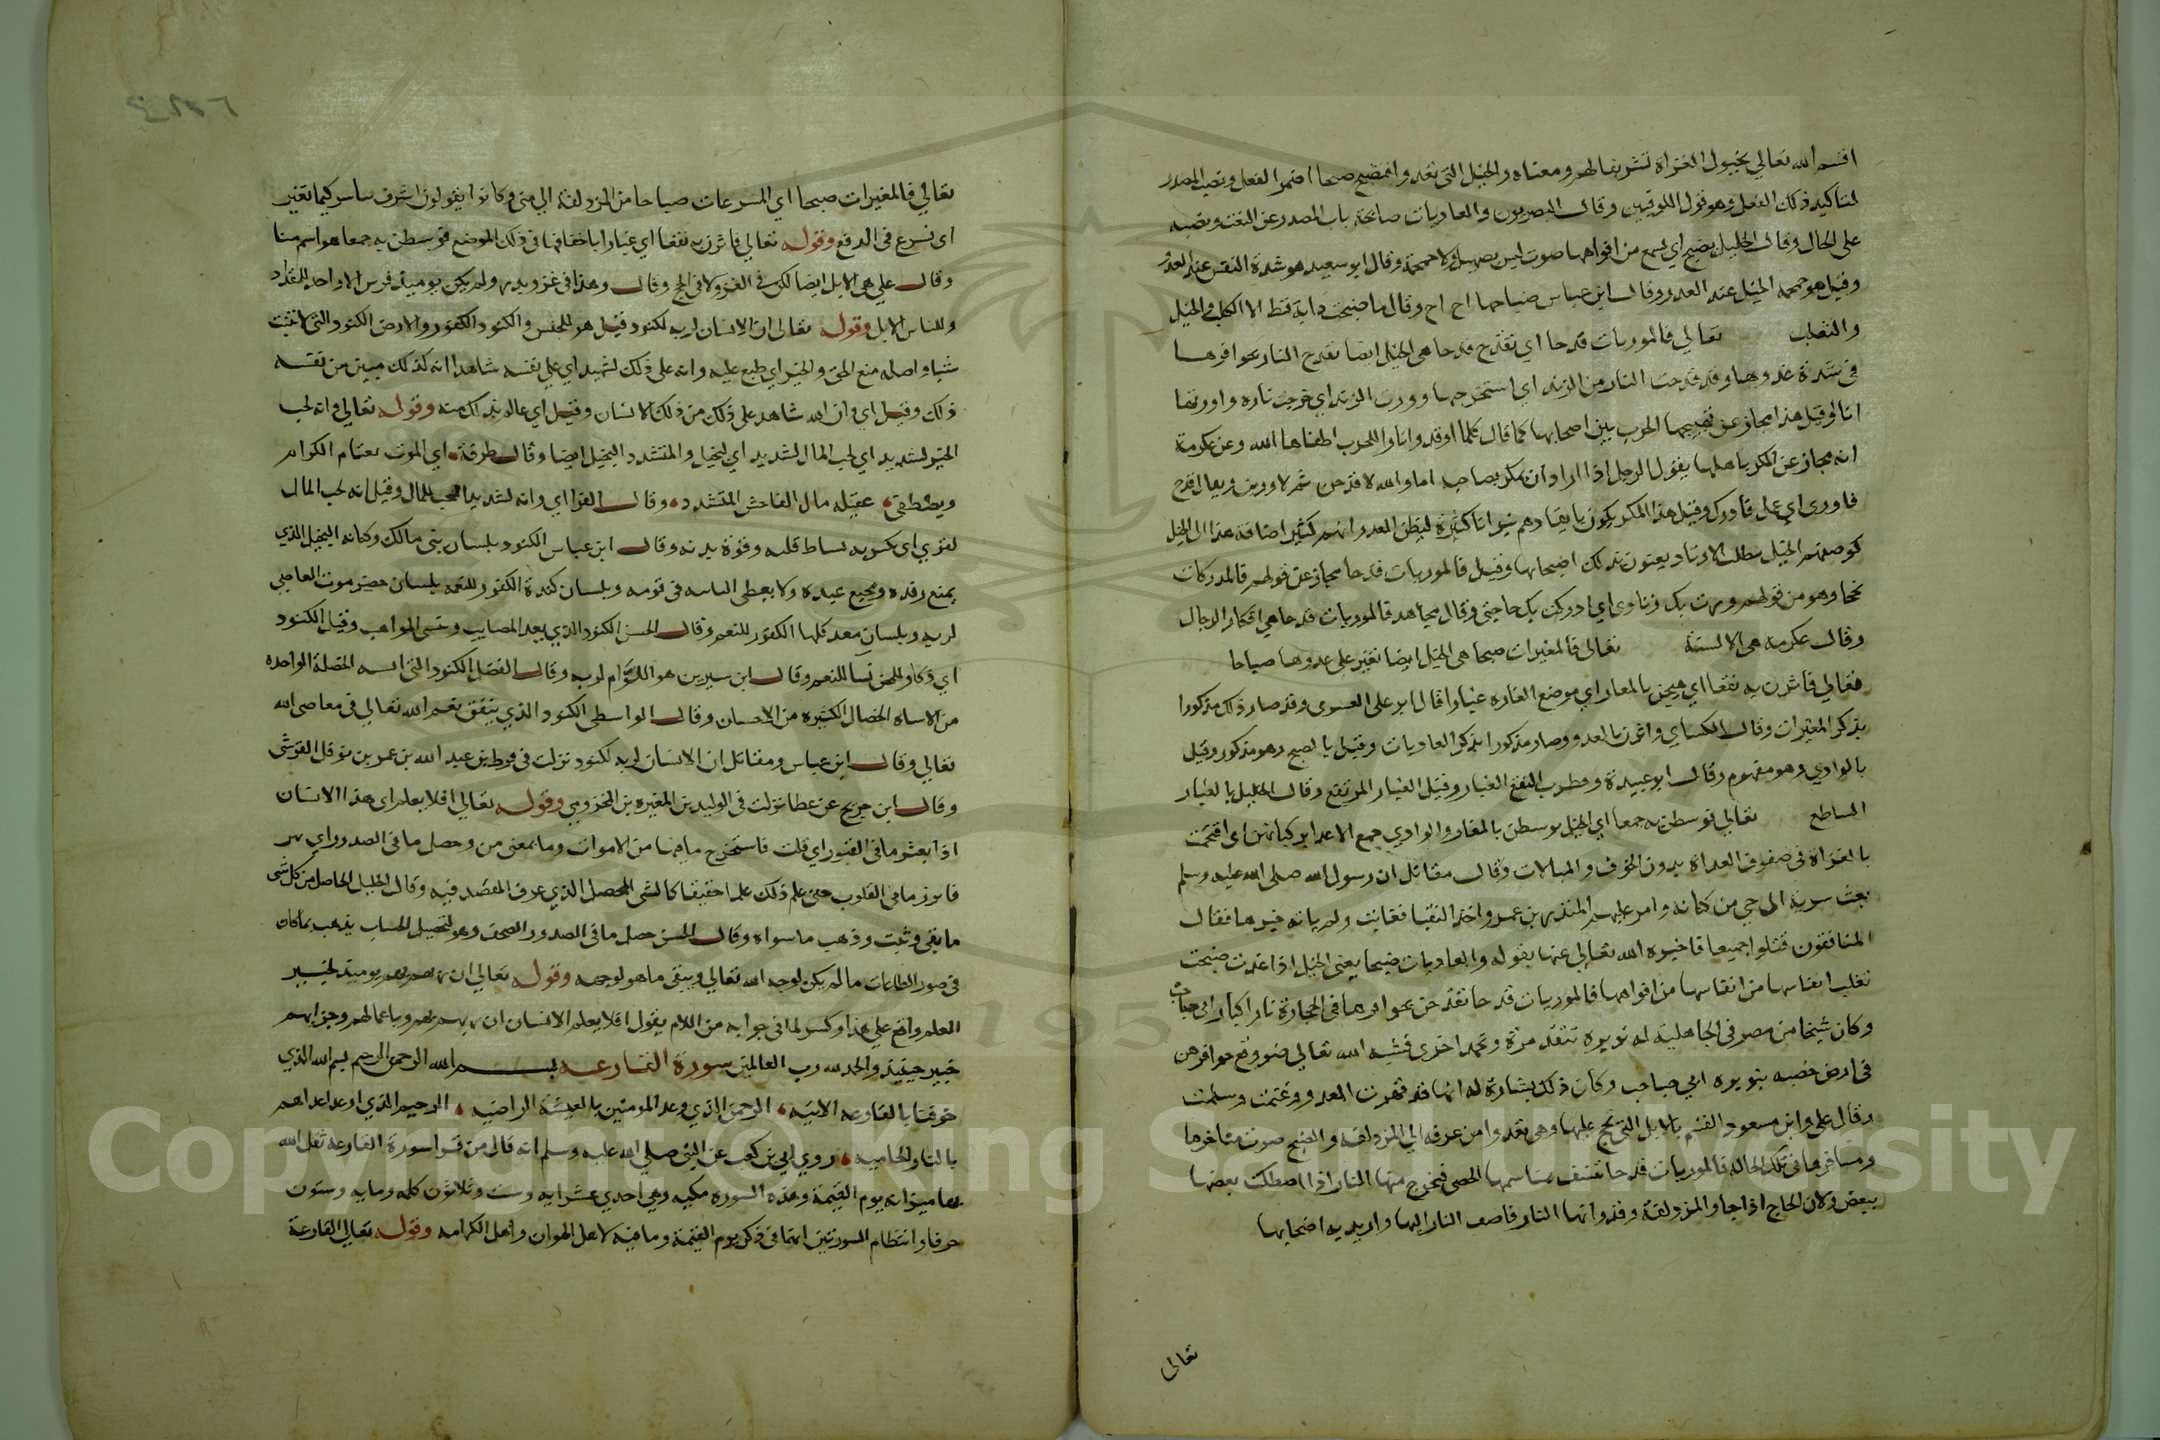 اقسم الله تعالي بخيول الغزاة تشريفا لهم ومعناه والخيل التي تعدوا فتضبح ضبحا اضمر الفعل ونصب المصدر
لتاكيد ذلك الفعل وهو قول الكوفيين وقال البصريون والعاديات ضابحة باب المصدر عن النعت ونصبه
على الحال وقال الخليل يضبح اي يسمع من افواهها صوت ليس بصهيل ولا حمحمة وقال ابو سعيد هو شدة النفس عند العدو
وقيل هو حمحمة الخيل عند العدو وقال ابن عباس ضباحها اح اح وقال ما ضبحت دابة قط الا الكلب والخيل
والثعلب تعالي فالموريات قدحا اي تقدح قدحا هي الخيل ايضا تقدح النار بحوافرها
في شدة عدوها وقد قدحت النار من الزند اي استخرجها وورت الزند اي خرجت ناره واوريتها
انا وقيل هذا مجاز عن تهييجها الحرب بين اصحابها كما قال كلما اوقدوا نارا للحرب اطفاها الله وعن عكرمة
انه مجاز عن المكر باهلها يقول الرجل اذا اراد ان يمكر بصاحبه اما والله لا قدحن ثم لاورين ويقال قدح
فاورى اي عمل فادرك وقيل هذا المكر يكون بايقادهم نيرانا كثيرة ليظن العدو انهم كثير اضافة هذا الى الخيل
كوصفهم الخيل بطلب الاوتار يعنون بذلك اصحابها وقيل فالموريات قدحا مجاز عن قولهم فالمدركات
نجحا وهو من قولهم وريت بك زنادي اي ادركت بك حاجتي وقال مجاهد فالموريات قدحا هي افكار الرجال
وقال عكرمة هي الالسنة تعالى فالمغيرات صبحا هي الخيل ايضا تغير على عدوها صباحا
فتعالي فاثرن به نقعا اي هيجن بالمغار اي موضع الغارة غبارا قال ابو على الفسوى وقد صار ذلك مذكورا
بذكر المغيرات وقال الكسائي واثرن بالعدو وصار مذكورا بذكر العاديات وقيل بالصبح وهو مذكور وقيل
بالوادي وهو مفهوم وقال ابو عبيدة وقطرب النقع الغبار وقيل الغبار المرتفع وقال الخليل بالغبار
الساطع تعالي فوسطن به جمعا اي الخيل توسطن بالمغار والوادي جمع الاعدا بركبانهن اي اقتحمت
بالغزاة في صفوف العداة بدون الخوف والمبالات وقال مقاتل ان رسول الله صلى الله عليه وسلم
بعث سرية الى حي من كنانة وامر عليهم المنذر بن عمرو احد النقبا فغابت ولم ياته خبرها فقال
المنافقون قتلوا جميعا فاخبره الله تعالى عنها بقوله والعاديات ضبحا يعني الخيل اذا غدت ضبحت
تغلب انفاسها من افواهها فالموريات قدحا تقدحن بحوافرها في الحجارة نارا كنار ابي حباحب
وكان شيخا من مضر في الجاهلية له نويرة تتقد مرة وتخمد اخرى فشبه الله تعالي ضوء وقع حوافرهن
في ارض خصبه بنويرة ابي حباحب وكان ذلك بشارة له انها قد قهرت العدو وغنمت وسلمت
وقال علي وابن مسعود القسم بالابل التي يحج عليها وهي تعدوا من عرفه الي المزدلفه والضبح صوت مناخرها
ومسافرها في تلك الحاله فالموريات قدحا تقذف بمناسمها الحصى فتخرج منها النار اذا اصطكت بعضها
ببعض ولان الحاج اذا جاوا المزدلفة وقدوا بها النار فاضف النار اليها واريد به اصحابها
تعالى
تعالي فالمغيرات صبحا اي المسرعات صباحا من المزدلفة الي منى وكانوا يقولون اشرق ثبير كيما نغير
اي نسرع في الدفع وقوله تعالي فاثرن به نقعا اي غبارا باخفافها في ذلك الموضع فوسطن به جمعا هو اسم منا
وقال علي هي الابل ايضا لكن في الغزو لا في الحج وقال وهذا في غزو بدر ولم يكن يوميذ فرس الا واحد للمقداد
وللناس الابل وقوله تعالى ان الانسان لربه لكنود قيل هو للجنس والكنود الكفور والارض الكنود التي لا تنبت
شيا واصله منع الحق والخير اي طبع عليه وانه على ذلك لشهيد اي على نفسه شاهد انه كذلك مبين من نفسه
ذلك وقيل اي وان الله شاهد على ذلك من ذلك الانسان وقيل اي عالم بذلك منه وقوله تعالي وانه لحب
الخير لشديد اي لحب المال لشديد اي لبخيل والمتشدد البخيل ايضا وقال طرفة اي الموت يعتام الكرام
ويصطفي عقيلة مال الفاحش المتشدد وقال الفرا اي وانه لشديد الحب للمال وقيل انه لحب المال
لقوي اي يحويه بنشاط قلبه وقوة بدنه وقال ابن عباس الكنود بلسان بني مالك وكنانه البخيل الذي
يمنع رفده ويجيع عبده ولا يعطى النايبه في قومه وبلسان كندة الكفور للنعمه بلسان حضرموت العاصي
لربه وبلسان معد كلها الكفور للنعم وقال الحسن الكنود الذي يعد المصايب وينسى المواهب وقيل الكنود
للنعم وقال ابن سيرين هو اللوام لربه وقال الفضل الكنود التي انسته الخصلة الواحده
من الاساه الخصال الكثيره من الاحسان وقال الواسطي الكنود الذي ينفق نعم الله تعالي في معاصي الله
تعالي وقال ابن عباس ومقاتل ان الانسان لربه لكنود نزلت في قرط بن عبد الله بن عمر بن نوفل القرشي
وقال ابن جريج عن عطا نزلت في الوليد بن المغيره بن المخزومي وقوله تعالي افلا يعلم اي هذا الانسان
اذا بعثر ما في القبور اي قلب فاستخرج ما فيها من الاموات وما بمعنى من وحصل ما في الصدور اي ميز
فابرز ما في القلوب حتى علم ذلك علما حقيقا كالشي المحصل الذي عرف المقصد فيه وقال الخليل الحاصل من كل شي
ما بقي وثبت وذهب ما سواه وقال الحسن حصل ما في الصدور الصحف وهو لتحصيل الحساب يذهب بما كان
في صور الطاعات مالم يكن لوجه الله تعالي ويبقى ما هو لوجهه وقوله تعالي ان ربهم بهم يوميذ لخبير
العلم واقع علي هذا وكسر لما في جوابه من اللام يقول افلا يعلم الانسان ان ربهم بهم وباعمالهم وجزايهم
خبير حينيذ والحمد لله رب العالمين سورة القارعه بسم الله الرحمن الرحيم بسم الله الذي
خوفنا بالقارعه الاتيه الرحمن الذي وعد المومنين بالعيشة الراضيه الرحيم الذي اوعد اعداهم
بالنار الحاميه روي ابي بن كعب عن النبي صلى الله عليه وسلم انه قال من قرا سورة القارعه ثقل الله
بها ميزانه يوم القيمة وهذه السورة مكيه وهي احدي عشر ايه وست وثلاثون كلمه ومايه وستون
حرفا وانتظام السورتين انهما في ذكر يوم القيمة وما فيه لاهل الهوان واهل الكرامه وقوله تعالي القارعة